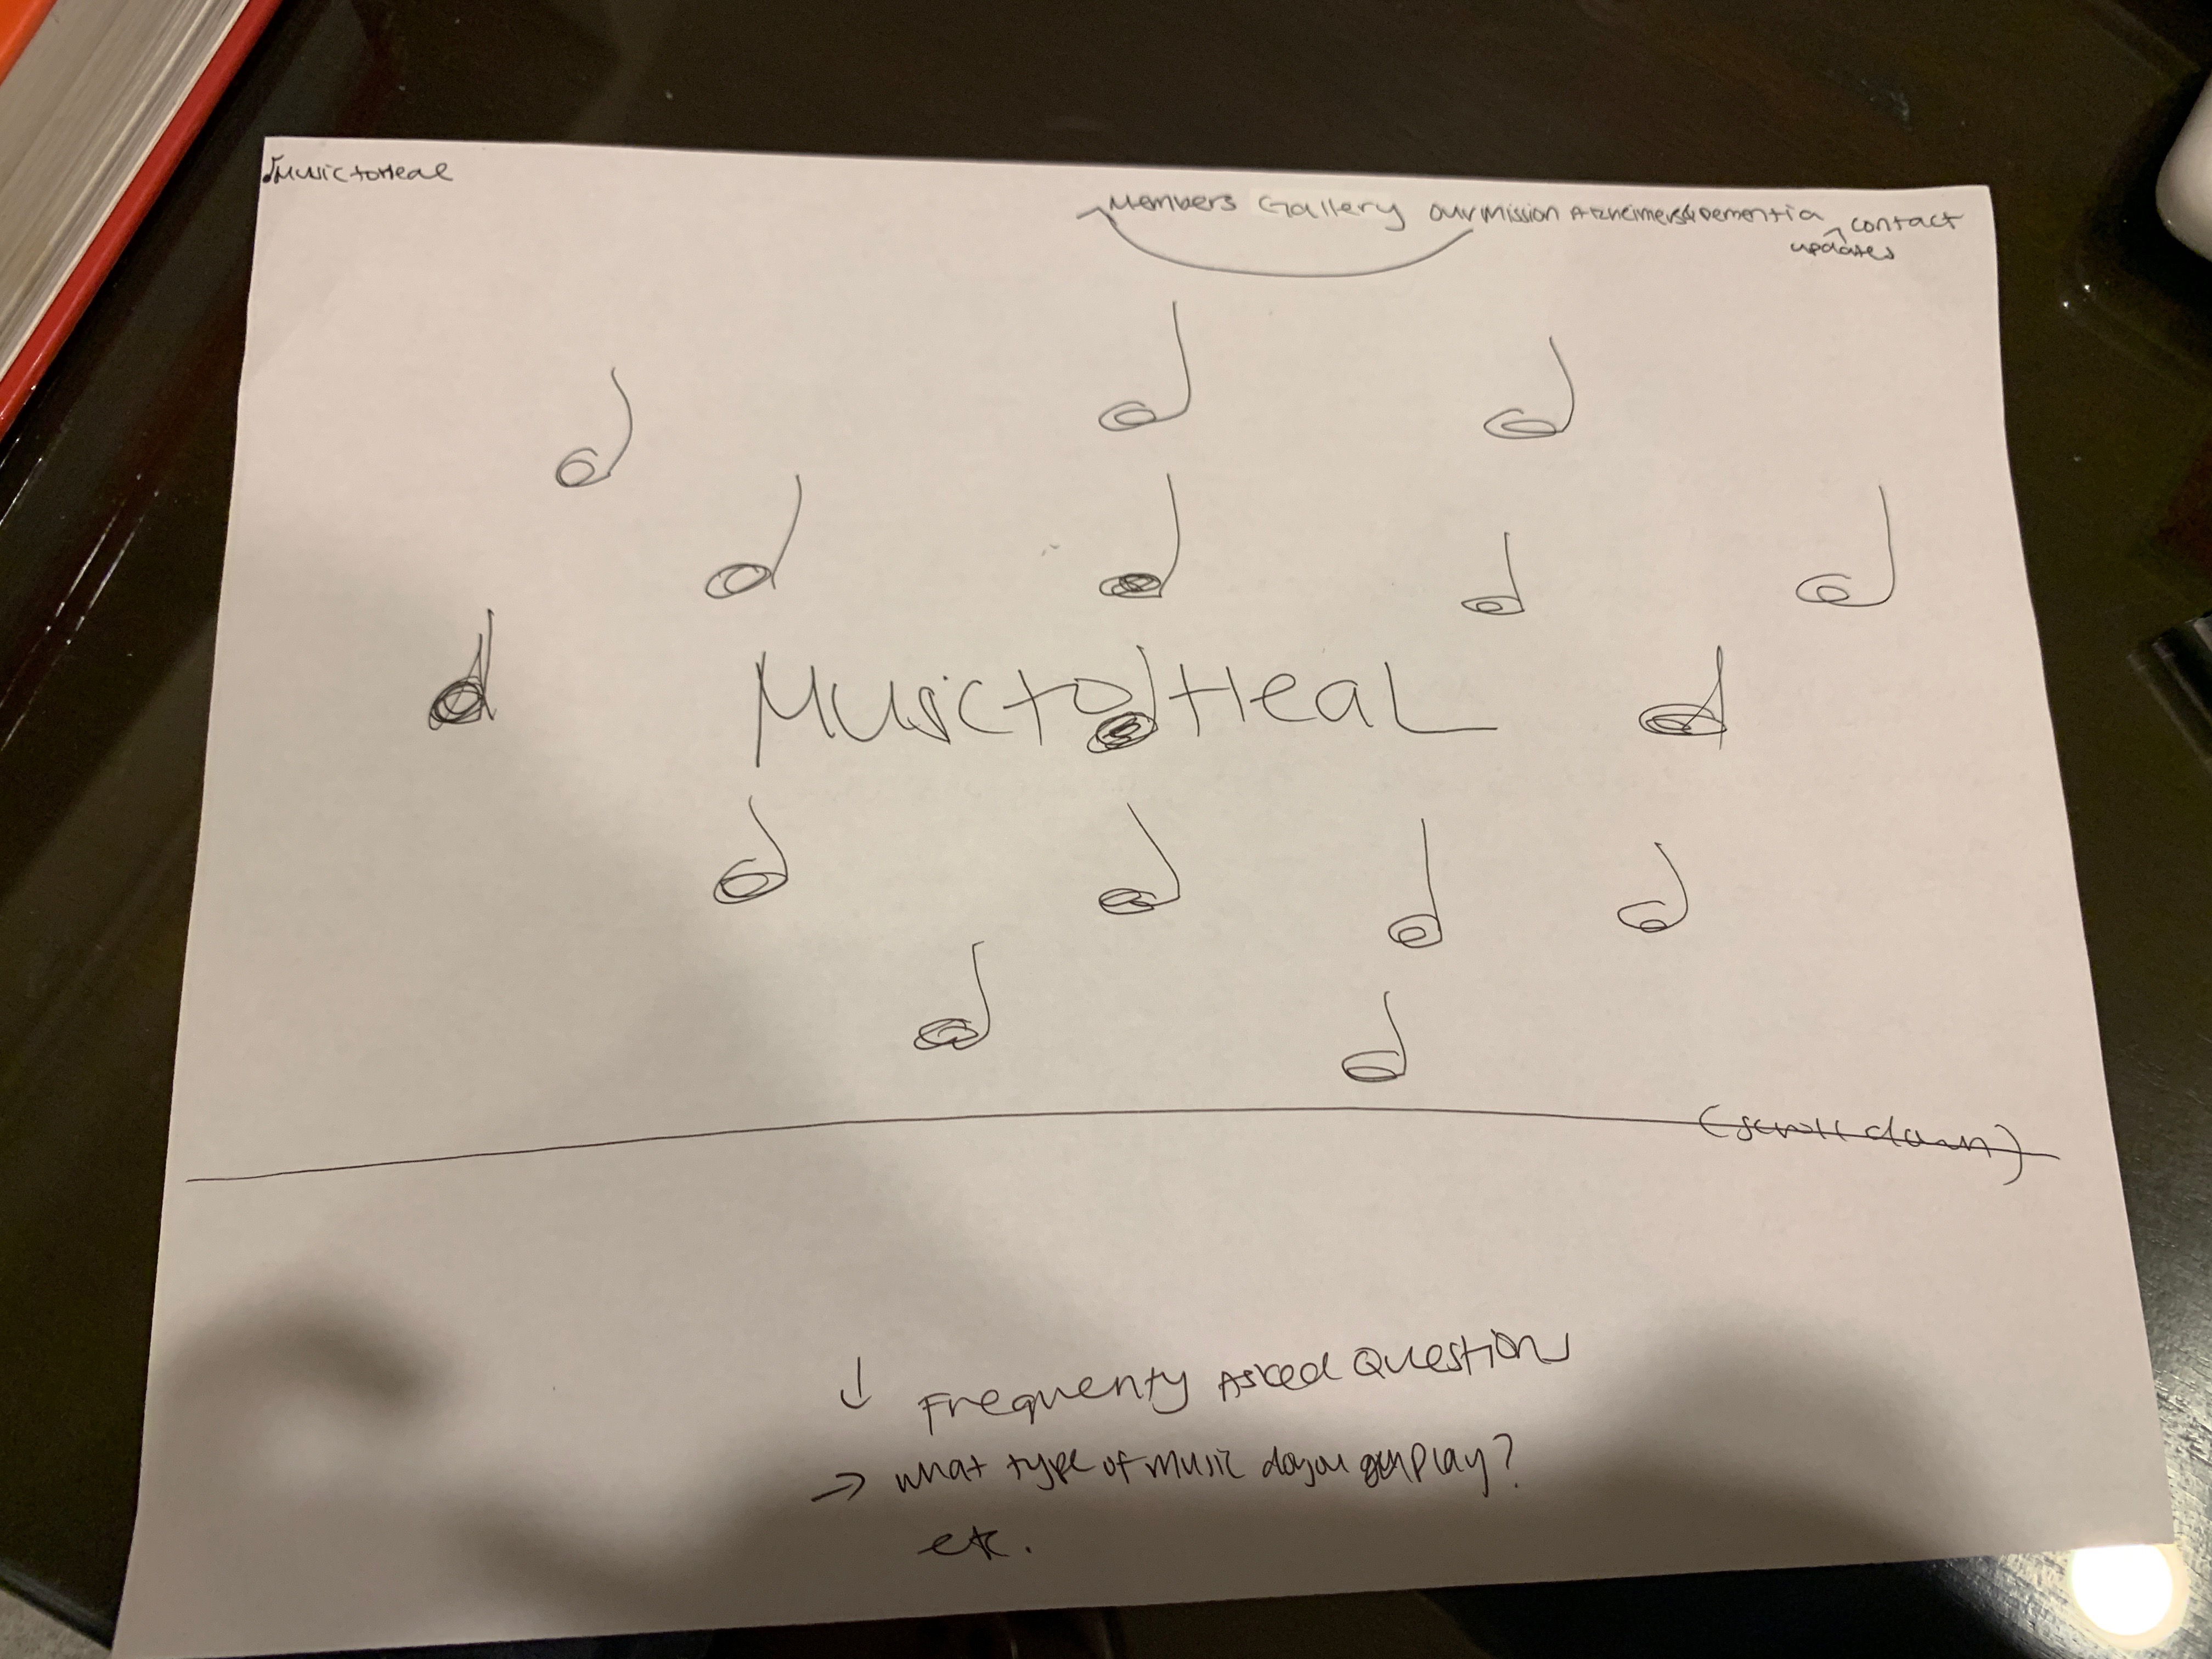 MusictoHeal
Members Gallery Our Mission Alzheimers & Dementia contact
updates
MusictoHeaL
(scroll down)
↓ Frequenty Asked Questions
→ what type of music do you play?
etc.